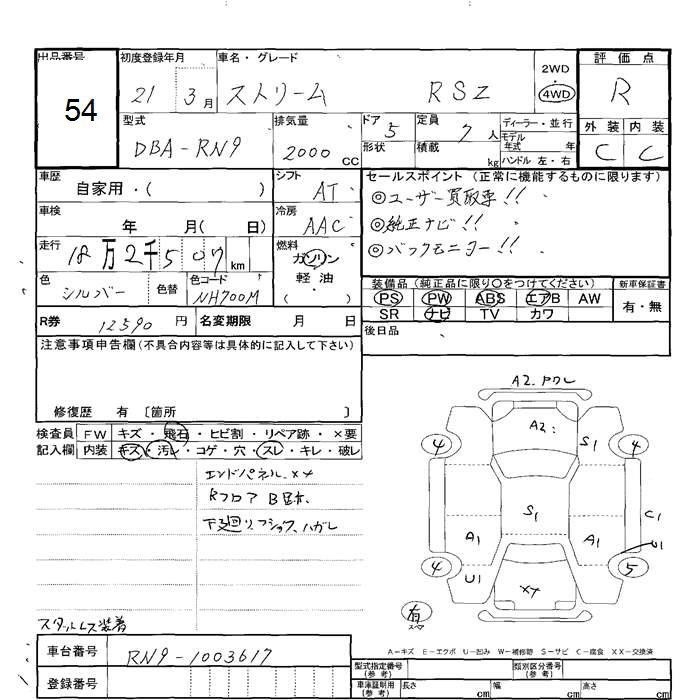 出品番号 初度登録年月 車名・グレード 評価点
54
21 3月 ストリーム RSZ
2WD
4WD
R
型式 排気量 ドア 定員 ディーラー・並行 外装 内装
DBA-RN9 2000cc 5 7人
形状 積載 kg
モデル年式 年
ハンドル 左・右
C C
車歴 シフト セールスポイント(正常に機能するものに限ります)
自家用・( ) AT
◎ユーザー買取車!!
車検 冷房
年 月( 日) AAC
◎純正ナビ!!
走行 燃料
18万2千507km ガソリン
◎バックモニター!!
軽油
・
色 色替 色コード
シルバー NH700M
装備品(純正品に限り○をつけてください) 新車保証書
PS PW ABS エアB AW 有・無
SR ナビ TV カワ
R券 12590円 名変期限 月 日
後日品
注意事項申告欄(不具合内容等は具体的に記入して下さい)
修復歴 有 〔箇所 〕
検査員 FW キズ・飛石・ヒビ割・リペア跡・×要
記入欄 内装 キズ・汚レ・コゲ・穴・スレ・キレ・破レ
エンドパネル××
Rフロア B跡
下廻リ ハガレ
A2
A2 S1
4 4
S1 C1
A1 A1 U1
4 5
U1 XX
有
スペア
スタッドレス装着
A-キズ E-エクボ U-凹み W-補修跡 S-サビ C-腐食 XX-交換済
車台番号 RN9-1003617
登録番号
型式指定番号(参考) 類別区分番号(参考)
車庫証明用(参考) 長さ cm 幅 cm 高さ cm